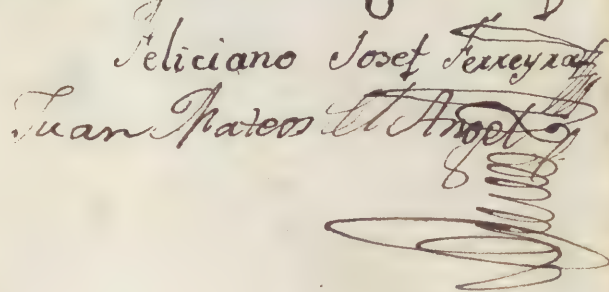 Feliciano Josef Ferreyra
Juan Mateos Angel